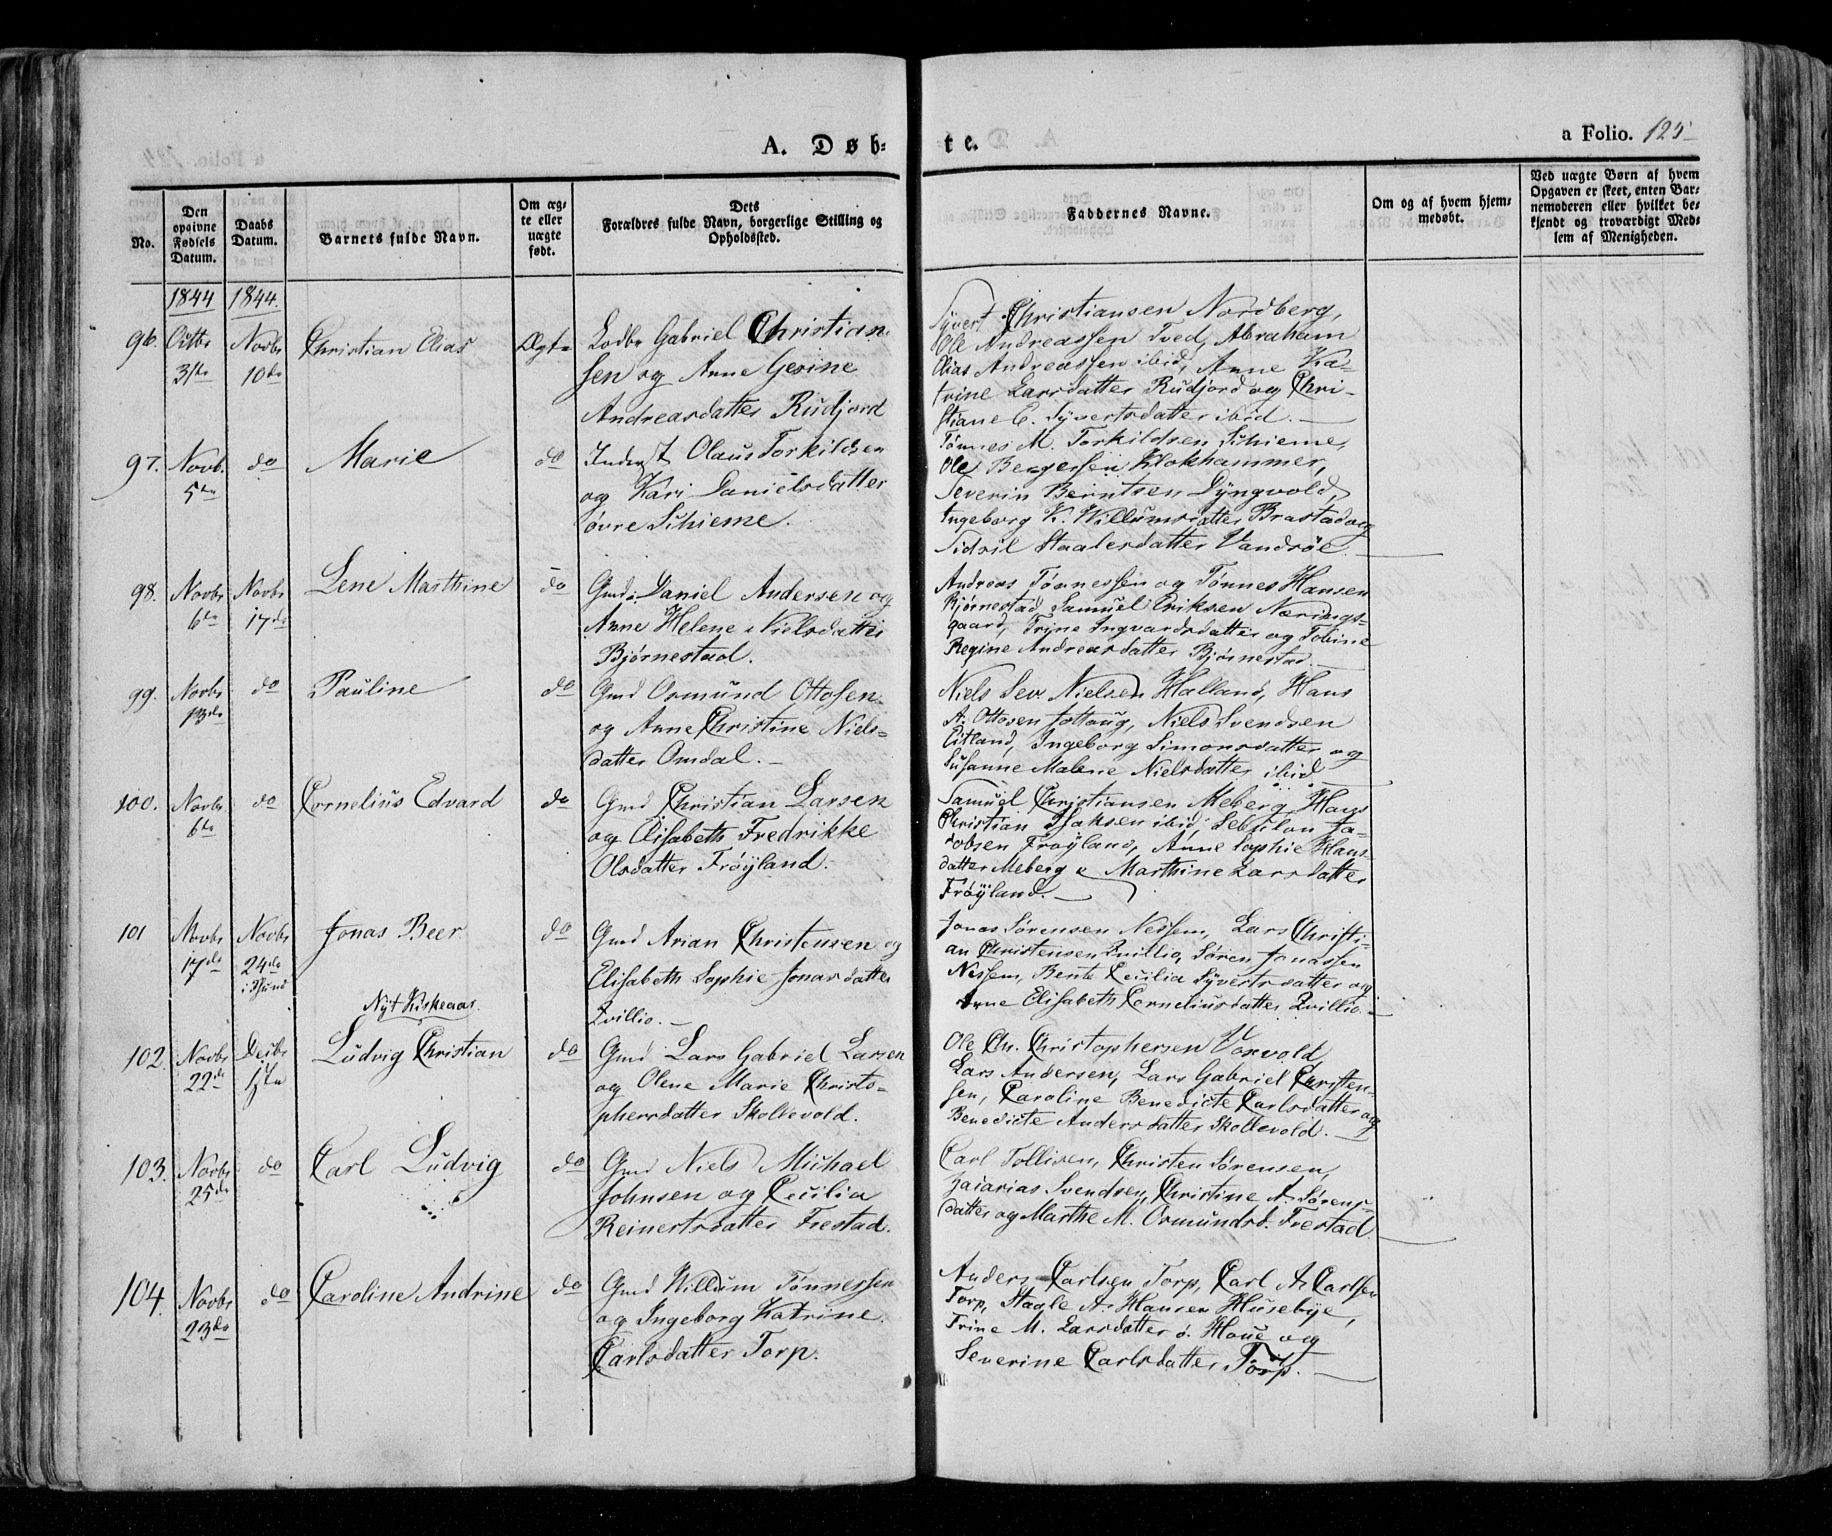 A. Døb-
te.
a Folio. 125
No.
Den
opgivne
Fødsels
Datum.
Daabs
Datum.
Barnets fulde Navn.
Om æg-
te eller
uægte
født.
Dets
Forældres fulde Navn, borgerlige Stilling og
Opholdssted.
Faddernes Navne.
Om og af hvem hjem-
medøbt.
Ved uægte Børn af hvem
Opgaven er skeet, enten Bar-
nemoderen eller hvilket be-
kjendt og troværdigt Med-
lem af Menigheden.
1844 1844.
96. Octbr 31te
Novbr 10de
Christian Elias
Ægte
Lodbr Gabriel Christian
sen og Anne Gesine
Andreasdatter Rudjord
Syvert Christiansen Nordberg,
Ole Andreassen Tved, Abraham
Elias Andreassen ibid, Anne Ka-
trine Larsdatter Rudjord og Chri-
stiane C. Syvertsdatter ibid.
97. Novb. 5te
do
Marie
do
Inderst Olaus Torkildsen
og Kari Danielsdatter
øvre Schieme.
Tønnes M. Torkildsen Schieme,
Ole Bergersen Klokhammer,
Severin Berntsen Dyngvold,
Ingeborg K. Willumsdatter Brastad og
Sidsil Staalesdatter Vandsøe
98. Novbr 6te
Novbr 17de
Lene Marthine
do
Gmd. Daniel Andersen og
Anne Helene Nielsdatter
Bjørnestad.
Andreas Tønnessen og Tønnes Hansen
Bjørnestad, Samuel Eriksen Nærings-
gaard, Trine Ingvardsdatter og Tobine
Regine Andreasdatter Bjørnestad.
99. Novbr 13de
do
Pauline
do
Gmd Ormund Ottosen
og Anne Christine Niels-
datter Omdal.
Niels Sev. Nielsen Halland, Hans
A. Ottosen Jottaug, Niels Svendsen
Eitland, Ingeborg Simonsdatter og
Susanne Malene Nielsdatter ibid
100. Novbr 6te
do
Cornelius Edvard
do
Gmd Christian Larsen
og Elisabeth Fredrikke
Olsdatter Frøyland.
Samuel Christiansen Meberg, Hans
Christian Isaksen ibid, Ja-
cobsen Frøyland, Anne Sophie Hans-
datter Meberg & Marthine Larsdatter
Frøyland.
101 Novbr 17de
Novbr 24de
i
Jonas Beer
do
Gmd Arian Christensen og
Elisabeth Sophie Jonasdatter
Qvillio.
Jonas Sørensen Nessem, Lars Christi-
an Christensen Qvillio, Søren Jonassen
Nessem, Bente Cecilia Syvertsdatter og
Arne Elisabeth Corneliusdatter Qvillio.
Nyt Kirkeaar.
102. Novbr 22de
Decbr 1ste
Ludvig Christian
do
Gmd Lars Gabriel Larsen
og Olene Marie Christo-
phersdatter Skollevold.
Ole Chr. Christophersen Vorvold,
Lars Andersen, Lars Gabriel Christen-
sen, Caroline Benedicte Carlsdatter og
Benedicte Andersdatter Skollevold.
103. Novbr 25de
do
Carl Ludvig
do
Gmd Niels Michael
Johnsen og Cecilia
Reinertsdatter Frestad.
Carl Tollisen, Christen Sørensen,
Zacarias Svendsen, Christine A. Sørens-
datter og Marthe M. Ormundsd. Frestad.
104. Novbr 23de
do
Caroline Andrine
do
Gmd Willum Tønnessen
og Ingeborg Katrine
Carlsdatter Torp.
Anders Carlsen Torp, Carl A. Carlsen
Torp, Staale A. Hansen Husebye,
Trine M. Larsdatter ø. Houe og
Severine Carlsdatter Torp.